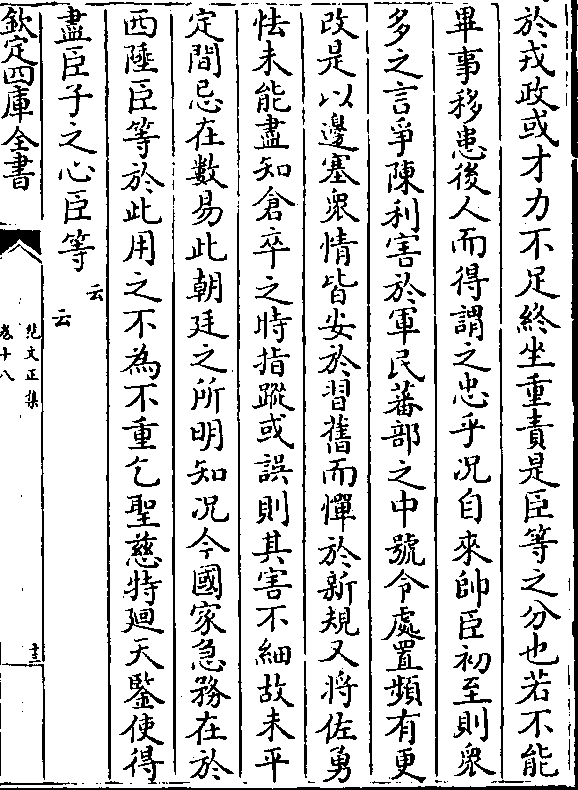 於戎政或才力不足終坐重責是臣等之分也若不能
畢事移患後人而得謂之忠乎况自來帥臣初至則衆
多之言爭陳利害於軍民蕃部之中號令處置頻有更
改是以邊塞衆情皆安於習舊而憚於新規又将佐勇
怯未能盡知倉卒之時指蹤或誤則其害不細故未平
定間忌在數易此朝廷之所明知况今國家急務在於
西陲臣等於此用之不為不重乞聖慈特廻天鑒使得
盡臣子之心臣等云云
欽定四庫全書
范文正集
卷十八
十三